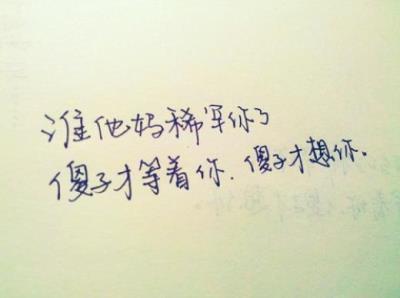 谁他妈稀罕你了
傻子才等着你.傻子才想你.